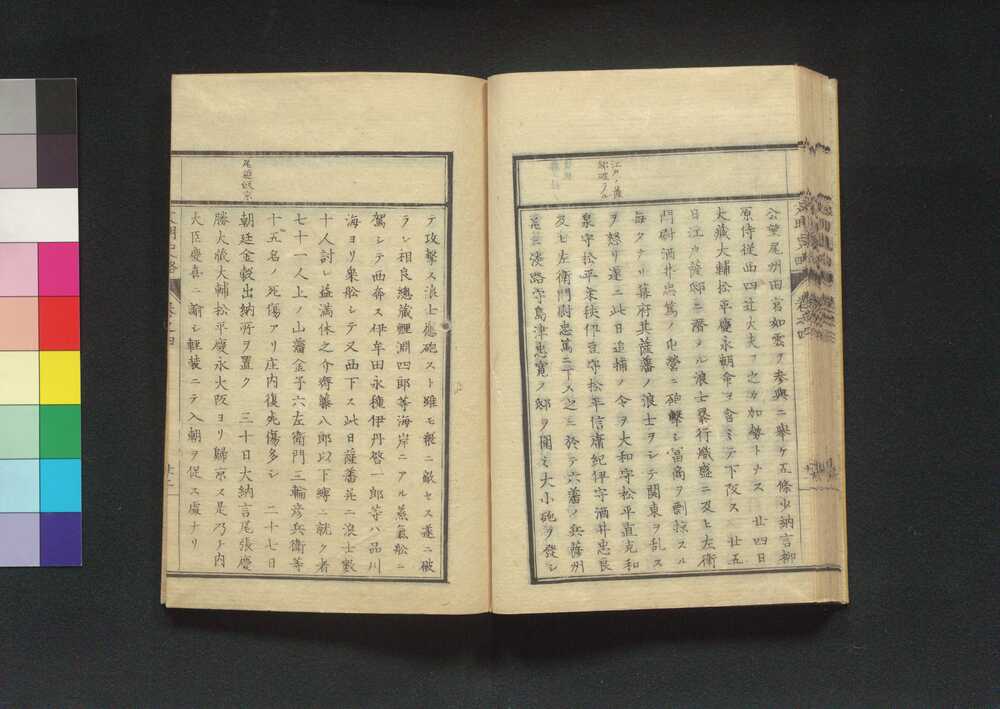 江戸ノ薩
邸破ラル
公望尾州田宮如雲ヲ参與ニ舉ケ五條少納言柳
原侍從西四辻大夫ヲ之カ加勢トナス　廿四日
大藏大輔松平慶永朝命ヲ含ミテ下阪ス　廿五
日江戸薩邸ニ潛メル浪士暴行熾盛ニ及ヒ左衛
門尉酒井忠篤ノ屯營ニ砲擊シ冨商ヲ剽掠スル
每夕ナリ幕府其薩藩ノ浪士ヲシテ関東ヲ乱ス
ヲ怒リ遂ニ此日追捕ノ令ヲ大和守松平直克和
泉守松平乗秩伊豆守松平信庸紀伊守酒井忠良
及ヒ左衛門尉忠篤ニ下ス之ニ於テ六藩ノ兵薩州
邸並淡路守島津忠寛ノ邸ヲ囲ミ大小砲ヲ發シ
テ攻擊ス浪士應砲スト雖モ衆ニ敵セス遂ニ破
ラレ相良總蔵鯉淵四郎等海岸ニアル蒸氣舩ニ
駕シテ西奔ス伊牟田永種伊丹啓一郎等ハ品川
海ヨリ乗舩シテ又西下ス此日薩藩並ニ浪士數
十人討レ益満休之介齊藤八郎以下縛ニ就ク者
七十一人上ノ山藩金子六左衛門三輪彦兵衛等
十五名ノ死傷アリ庄内復死傷多シ　二十七日
尾越皈京
朝廷金穀出納所ヲ置ク　三十日大納言尾張慶
勝大蔵大輔松平慶永大阪ヨリ歸京ス是乃チ内
大臣慶喜ニ諭シ軽装ニテ入朝ヲ促ス處ナリ
文明史略　卷之四